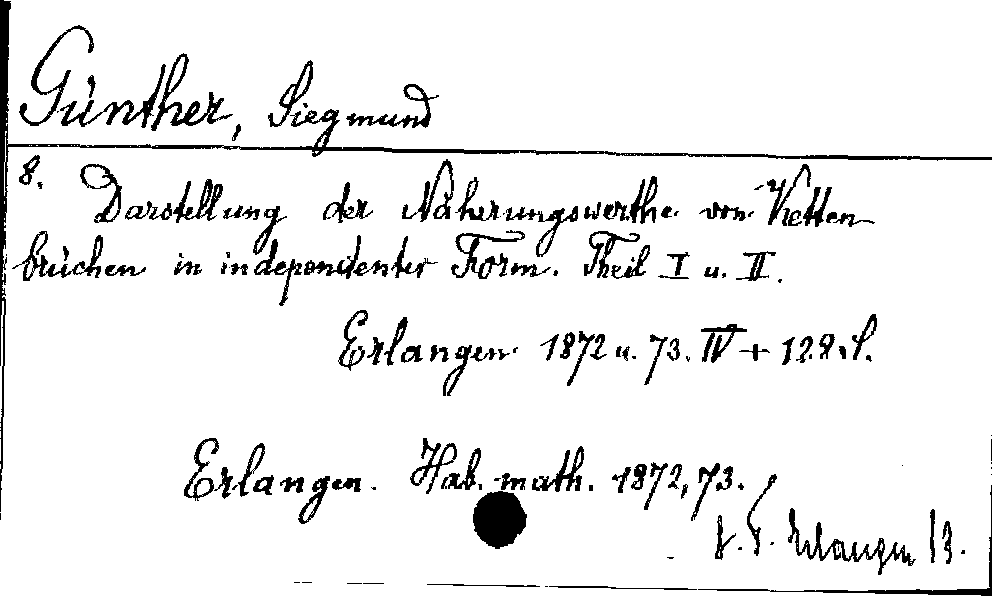 Günther, Siegmund
8.
Darstellung der Näherungswerthe von Ketten
brüchen in independenter Form. Theil I u. II.
Erlangen 1872 u. 73. IV + 128 S.
Erlangen. Hab. math. 1872, 73.
Erlangen 13.